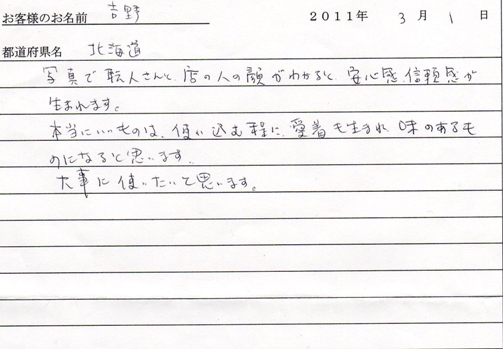 お客様のお名前 吉野 2011年 3月 1日
都道府県名 北海道
写真で職人さんと、店の人の顔がわかると、安心感、信頼感が
生まれます。
本当にいいものは、使い込む程に、愛着も生まれ、味のあるも
のになると思います。
大事に使いたいと思います。